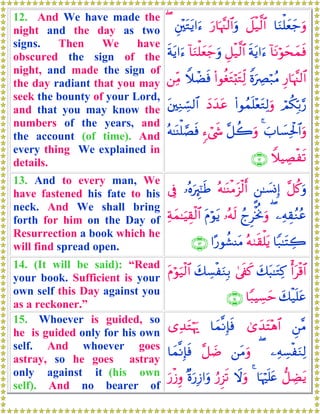 12. And We have made the
night and the day as two
signs. Then We have
obscured the sign of the
night, and made the sign of
the day radiant that you may
seek the bounty of your Lord,
and that you may know the
numbers of the years, and
the account (of time). And
every thing We explained in
details.
وَجَعَلْنَا ٱلَّيْلَ وَٱلنَّهَارَ ءَايَتَيْنِ ۖ
فَمَحَوْنَآ ءَايَةَ ٱلَّيْلِ وَجَعَلْنَآ ءَايَةَ
ٱلنَّهَارِ مُبْصِرَةً لِّتَبْتَغُوا۟ فَضْلًا مِّن
رَّبِّكُمْ وَلِتَعْلَمُوا۟ عَدَدَ ٱلسِّنِينَ
وَٱلْحِسَابَ ۚ وَكُلَّ شَىْءٍ فَصَّلْنَـٰهُ
تَفْصِيلًا ﴿١٢﴾
13. And to every man, We
have fastened his fate to his
neck. And We shall bring
forth for him on the Day of
Resurrection a book which he
will find spread open.
وَكُلَّ إِنسَـٰنٍ أَلْزَمْنَـٰهُ طَـٰٓئِرَهُۥ فِى
عُنُقِهِۦ ۖ وَنُخْرِجُ لَهُۥ يَوْمَ ٱلْقِيَـٰمَةِ
كِتَـٰبًا يَلْقَىٰهُ مَنشُورًا ﴿١٣﴾
14. (It will be said): “Read
your book. Sufficient is your
own self this Day against you
as a reckoner.”
ٱقْرَأْ كِتَـٰبَكَ كَفَىٰ بِنَفْسِكَ ٱلْيَوْمَ
عَلَيْكَ حَسِيبًا ﴿١٤﴾
15. Whoever is guided, so
he is guided only for his own
self. And whoever goes
astray, so he goes astray
only against it (his own
self). And no bearer of
مَّنِ ٱهْتَدَىٰ فَإِنَّمَا يَهْتَدِى
لِنَفْسِهِۦ ۖ وَمَن ضَلَّ فَإِنَّمَا
يَضِلُّ عَلَيْهَا ۚ وَلَا تَزِرُ وَازِرَةٌ وِزْرَ